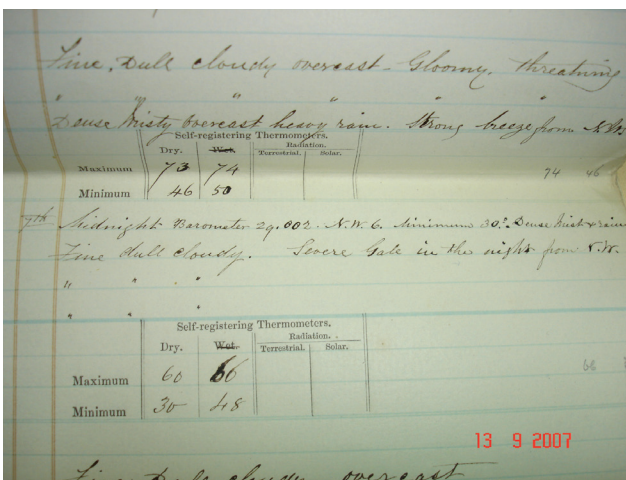 Fine, Dull cloudy overcast - Gloomy. threatning
" " " " "
Dense Misty Overcast heavy rain. Strong breeze from N.W.
Self-registering Thermometers.
Dry. Wet. Radiation.
Terrestrial. Solar.
Maximum 73 74 74 46
Minimum 46 50
Midnight Barometer 29.002. N.W. 6. Minimum 30.° Dense Mist & rain
Fine dull cloudy. Severe Gale in the night from N.W.
" " "
" " "
Self-registering Thermometers.
Dry. Wet. Radiation.
Terrestrial. Solar.
Maximum 60 66 68
Minimum 30 48
13 9 2007
Fine Dull cloudy overcast